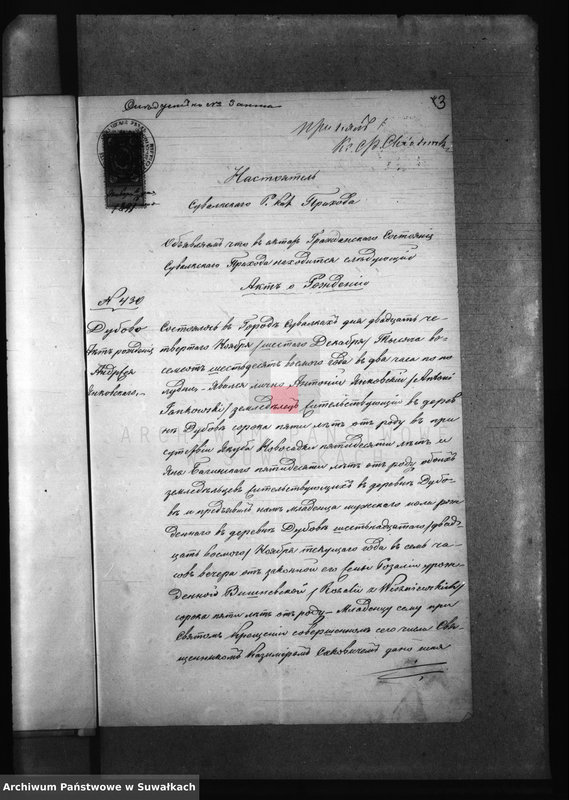 3
принялъ
Настоятель
Сувалкскаго Р. Кат. Прихода
Объявляетъ что въ актахъ Гражданскаго Состоянія
Сувалкскаго Прихода находится слѣдующій
Актъ о Рожденіи
N 430
Дубово
Актъ рожденія
Андрея
Янковскаго
Состоялось въ Городѣ Сувалкахъ дня двадцать че-
твертаго Ноября /шестаго Декабря/ Тысяча во-
семсотъ шестьдесятъ восьмого года въ два часа по по
лудни. Явился лично Антоній Янковскій /Antoni
Jankowski/ земледѣлецъ жительствующій въ дерев
нѣ Дубовѣ сорока пяти лѣтъ отъ роду въ при
сутствіи Якуба Новосадки пятидесяти лѣтъ и
Яна пятидесяти лѣтъ отъ роду обоихъ
земледѣльцевъ жительствующихъ въ деревнѣ Дубо-
вѣ и предъявилъ намъ младенца мужскаго пола рож
деннаго въ деревнѣ Дубовѣ шестьнадцатаго /двад-
цать восьмого/ Ноября текущаго года въ семь ча-
совъ вечера отъ законной его жены Розаліи урож-
денной Вишневской /Rosalii z Wiśniewskich/
сорока пяти лѣтъ отъ роду. Младенцу сему при
Святомъ Крещеніи совершенномъ сего числа Свя-
щенникомъ Казимеромъ дано имя
ARCHIWUM PAŃSTWOWE
W SUWAŁKACH
Archiwum Państwowe w Suwałkach